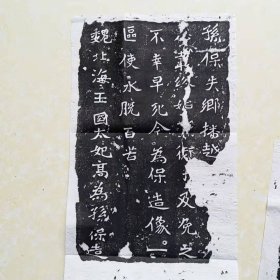 孫保失鄉播越
終始 及免
不幸早死今為保造像一
區使永脫百苦
魏北海王國太妃高為孫保造